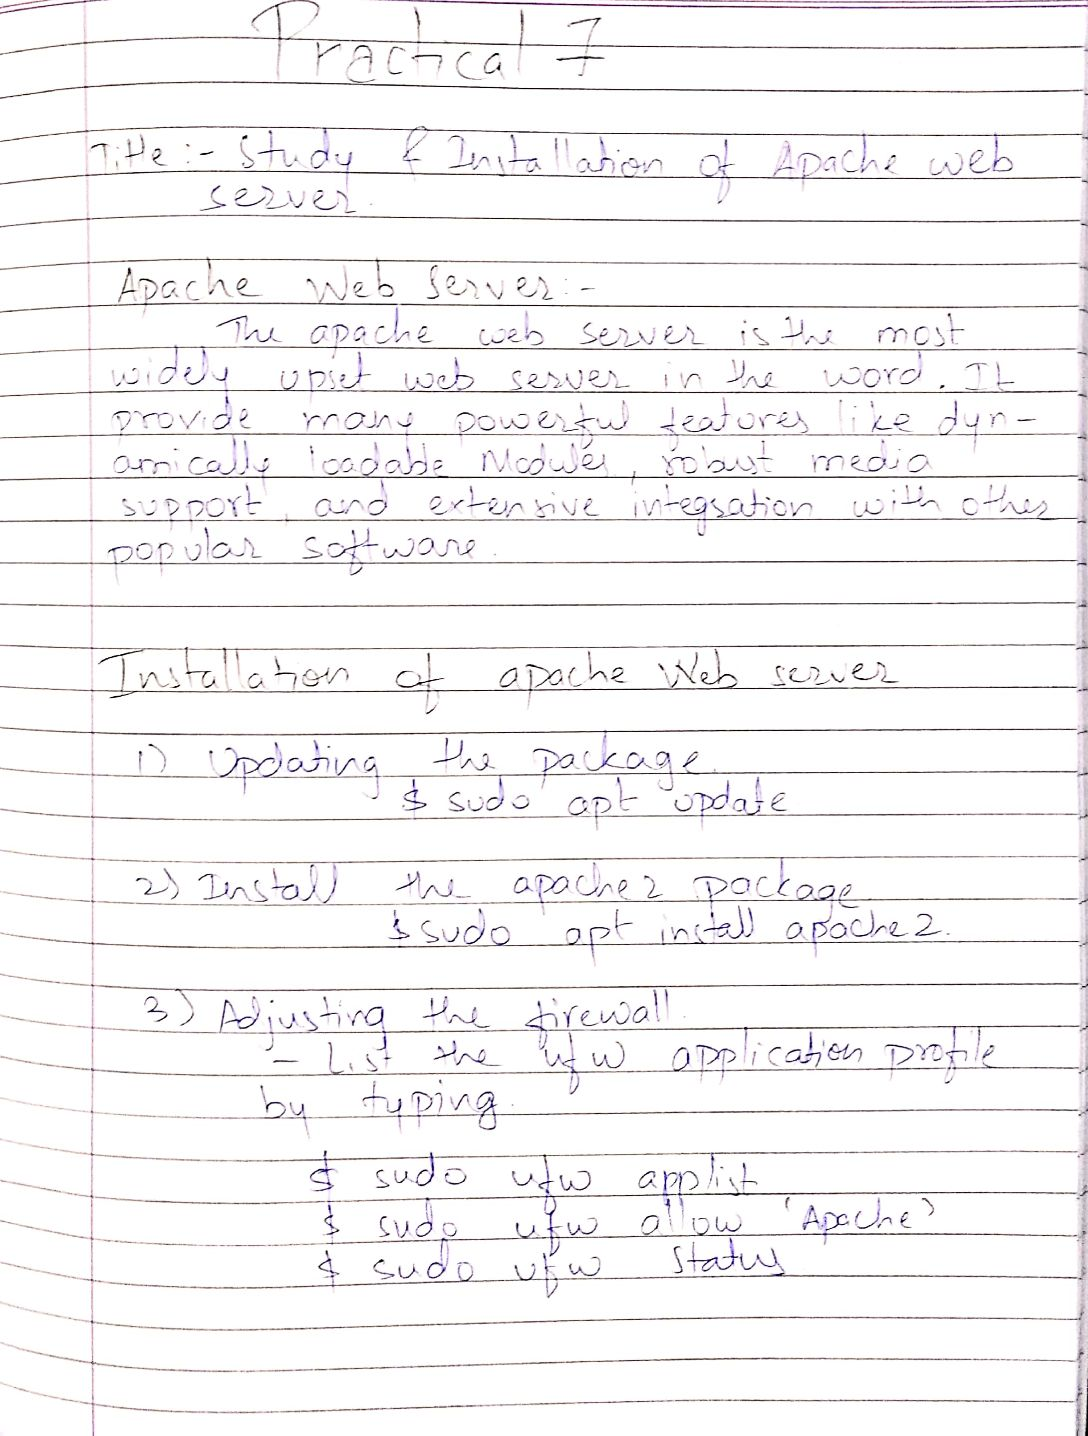 Practical 7
Title :- Study & Installation of Apache web
server.
Apache Web Server:-
The apache web server is the most
widely upset web server in the word. It
provide many powerful features like dyn-
amically loadable Modules, robust media
support, and extensive integsation with other
popular software.
Installation of apache Web server
1) Updating the package.
$ sudo apt update
2) Install the apache2 package.
$ sudo apt install apache2.
3) Adjusting the firewall.
- List the ufw application profile
by typing.
$ sudo ufw applist
$ sudo ufw allow 'Apache'
$ sudo ufw status